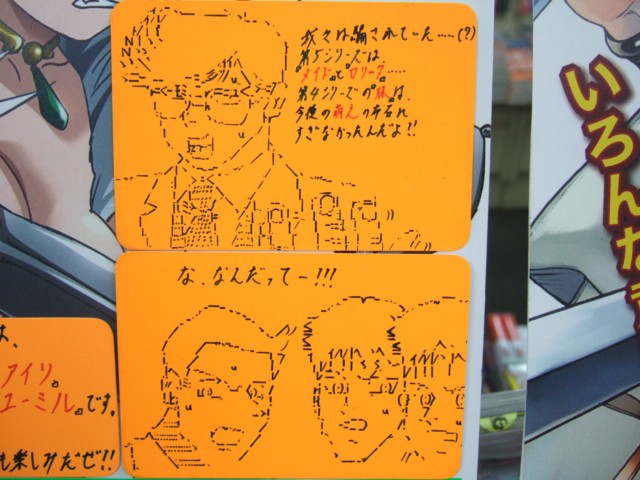 我々は騙されていた……(?)
第5シリーズは
『メイド』と『ロリーヴ』……
第4シリーズの『妹』は、
今後の萌えの布石に
すぎなかったんだよ!!
な、なんだってー!!!
は、
アイリ』
ユーミル』です。
も楽しみだぜ!!
いろんな